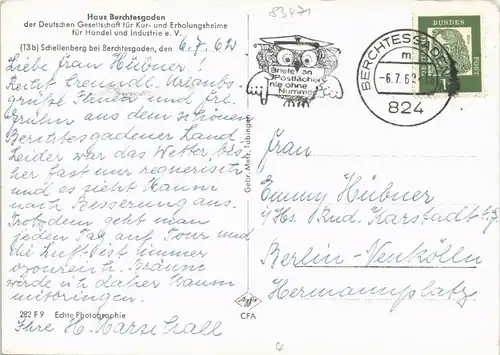 83471
Haus Berchtesgaden
der Deutschen Gesellschaft für Kur- und Erholungsheime
für Handel und Industrie e. V.
(13b) Schellenberg bei Berchtesgaden, den 6.7.62
Liebe Frau Hübner!
Recht freundl. Urlaubs-
grüße Ihnen und
aus dem schönen
Berchtesgadener Land.
Leider war das Wetter bis-
her fast nur regnerisch
und es sieht kaum
nach Besserung aus.
Trotzdem geht man
jeden Tag auf Tour und
die Luft ist immer
ozonreich. Bräune
werde ich daher kaum
mitbringen.
Ihre H. Marschall
282 F 9 Echte Photographie
Gebr. Metz, Tübingen
CFA
Briefe an
Postfächer
nie ohne
Nummer
BERCHTESGADEN
m
-6.7.62
824
BUNDES
POST
Frau
Emmy Hübner
i/Hs. Rud. Karstadt A.G.
Berlin-Neukölln
Hermannplatz